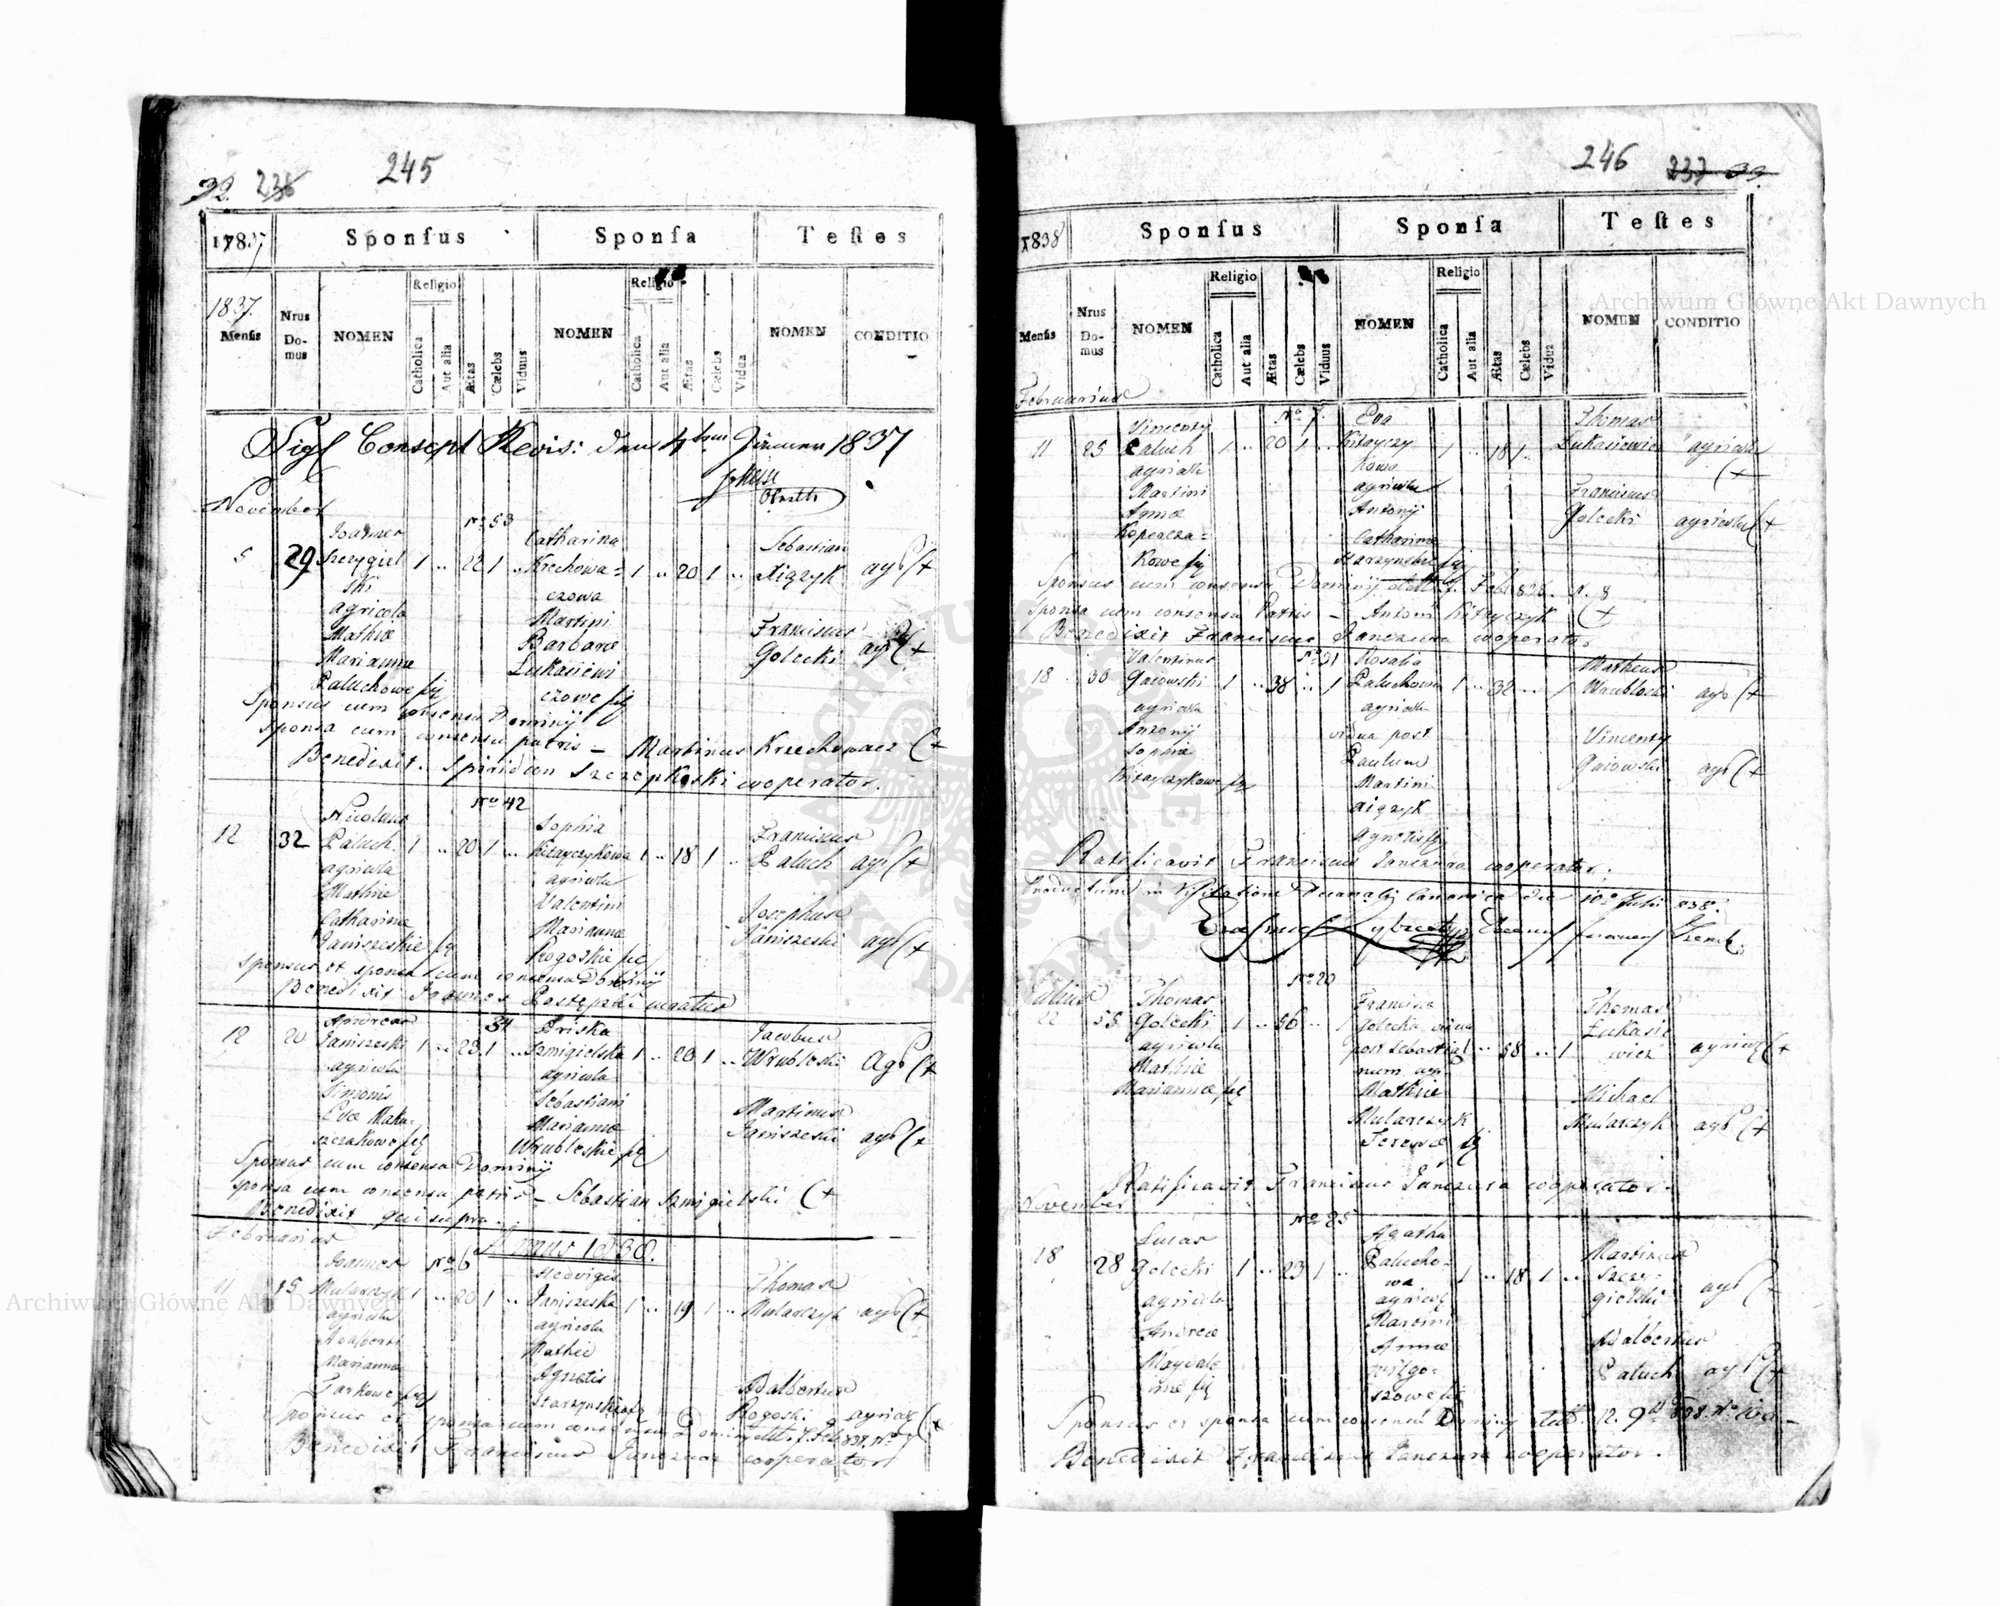 245
32. 236
1837
Sponsus
Sponsa
Testes
1837.
Mensis
Nrus Domus
NOMEN
Religio
Catholica
Aut alia
Ætas
Cælebs
Viduus
NOMEN
Religio
Catholica
Aut alia
Ætas
Cælebs
Vidua
NOMEN
CONDITIO
Sigl Consept Revis: den 4ten Jänner 1837
November
No 53
5 29 Joannes
Szczygiel
ski
agricola
Mathiæ
Mariannæ
Paluchowe fig
1 .. 22 1 ..
Catharina
Krechowa=
czowa
Martini
Barbaræ
Lukasiewi
czowe fig
1 .. 20 1 ..
Sebastian
Xiązyk agr (+
Franciscus
Golecki agr (+
Sponsus cum consensu Dominij
Sponsa cum consensu patris - Martinus Krzechowacz (+
Benedixit. Spiridion Szczepkoski cooperator.
No 42
12 32 Nicolaus
Paluch
agricola
Mathiæ
Catharinæ
Janiszeskie fig
1 .. 20 1 ..
Sophia
Kitayczykowa
agricola
Valentini
Mariannæ
Rogoskie fig
1 .. 18 1 ..
Franciscus
Paluch agr (+
Josephus
Janiszeski agr (+
Sponsus et sponsa cum consensu Dominij
Benedixit Joannes Postępski curatus
34
12 20 Andreas
Janiszeski
agricola
Simonis
Evæ Maka=
szczakowe fig
1 .. 23 1 ..
Priska
Szmigielska
agricola
Sebastiani
Mariannæ
Wrubleskie fig
1 .. 20 1 ..
Jacobus
Wrubleski Agr (+
Martinus
Janiszeski agr (+
Sponsus cum consensu Dominij
Sponsa cum consensu patris - Sebastian Szmigielski (+
Benedixit qui supra.
Februarius
Annus 1838.
No 6
11 15 Joannes
Mularczyk
agricola
Adalberti
Mariannæ
Tarkowe fig
1 .. 20 1 ..
Hedvigis
Janiszeska
agricola
Mathiæ
Agnetis
Starzynskie fig
1 .. 19 1 ..
Thomas
Mularczyk agr (+
Adalbertus
Rogoski agricol (+
Sponsus et sponsa cum consensu Dominij
Benedixit Franciscus Janczura cooperator
246
237 33
1838
Sponsus
Sponsa
Testes
Mensis
Nrus Domus
NOMEN
Religio
Catholica
Aut alia
Ætas
Cælebs
Viduus
NOMEN
Religio
Catholica
Aut alia
Ætas
Cælebs
Vidua
NOMEN
CONDITIO
Februarius
No 7.
11 25 Vincenty
Paluch
agricola
Martini
Agnæ
Kopeacza=
kowe fig
1 .. 20 1 ..
Eva
Kitayczy
kowa
agricola
Antonij
Catharinæ
Starzynskie fig
1 .. 18 1 ..
Thomas
Lukasiewicz agricola
(+
Franciscus
Golecki agricola (+
Sponsus cum consensu Dominij
Sponsa cum consensu Patris - Antoni Kitayczyk (+
Benedixit Franciscus Janczura cooperator
No 31
18 36 Valentinus
Gaiowski
agricola
Antonij
Sophiæ
Kitayczykowe fig
1 .. 38 .. 1
Rosalia
Paluchowa
agricola
vidua post
Paulum
Martini
Xiązyk
Agnetis fig
1 .. 32 .. 1
Matheus
Wrubloski agr (+
Vincenty
Gaiowski agr (+
Ratificavit Franciscus Janczura cooperator.
Productum in Visitatione Decanali Canonica die 10a Julii 838.
No 20
Julius
22 55 Thomas
Golecki
agricola
Mathiæ
Mariannæ fig
1 .. 56 .. 1
Francisca
Golecka vidua
post Sebastia
num agr.
Mathiæ
Mularczyk
Teresæ fig
1 .. 58 .. 1
Thomas
Łukasie
wicz agricol (+
Michael
Mularczyk agr (+
Ratificavit Franciscus Janczura cooperator.
November
No 25
18 28 Lucas
Golecki
agricola
Andreæ
Magdale
næ fig
1 .. 23 1 ..
Agatha
Palucho=
wa
agricol
Martini
Annæ
Wilgo=
szowe fig
1 .. 18 1 ..
Martinus
Szczy=
gielski agr (+
Adalbertus
Paluch agr (+
Sponsus et sponsa cum consensu Dominij
Benedixit Franciscus Janczura cooperator.
Archiwum Główne Akt Dawnych
Archiwum Główne Akt Dawnych